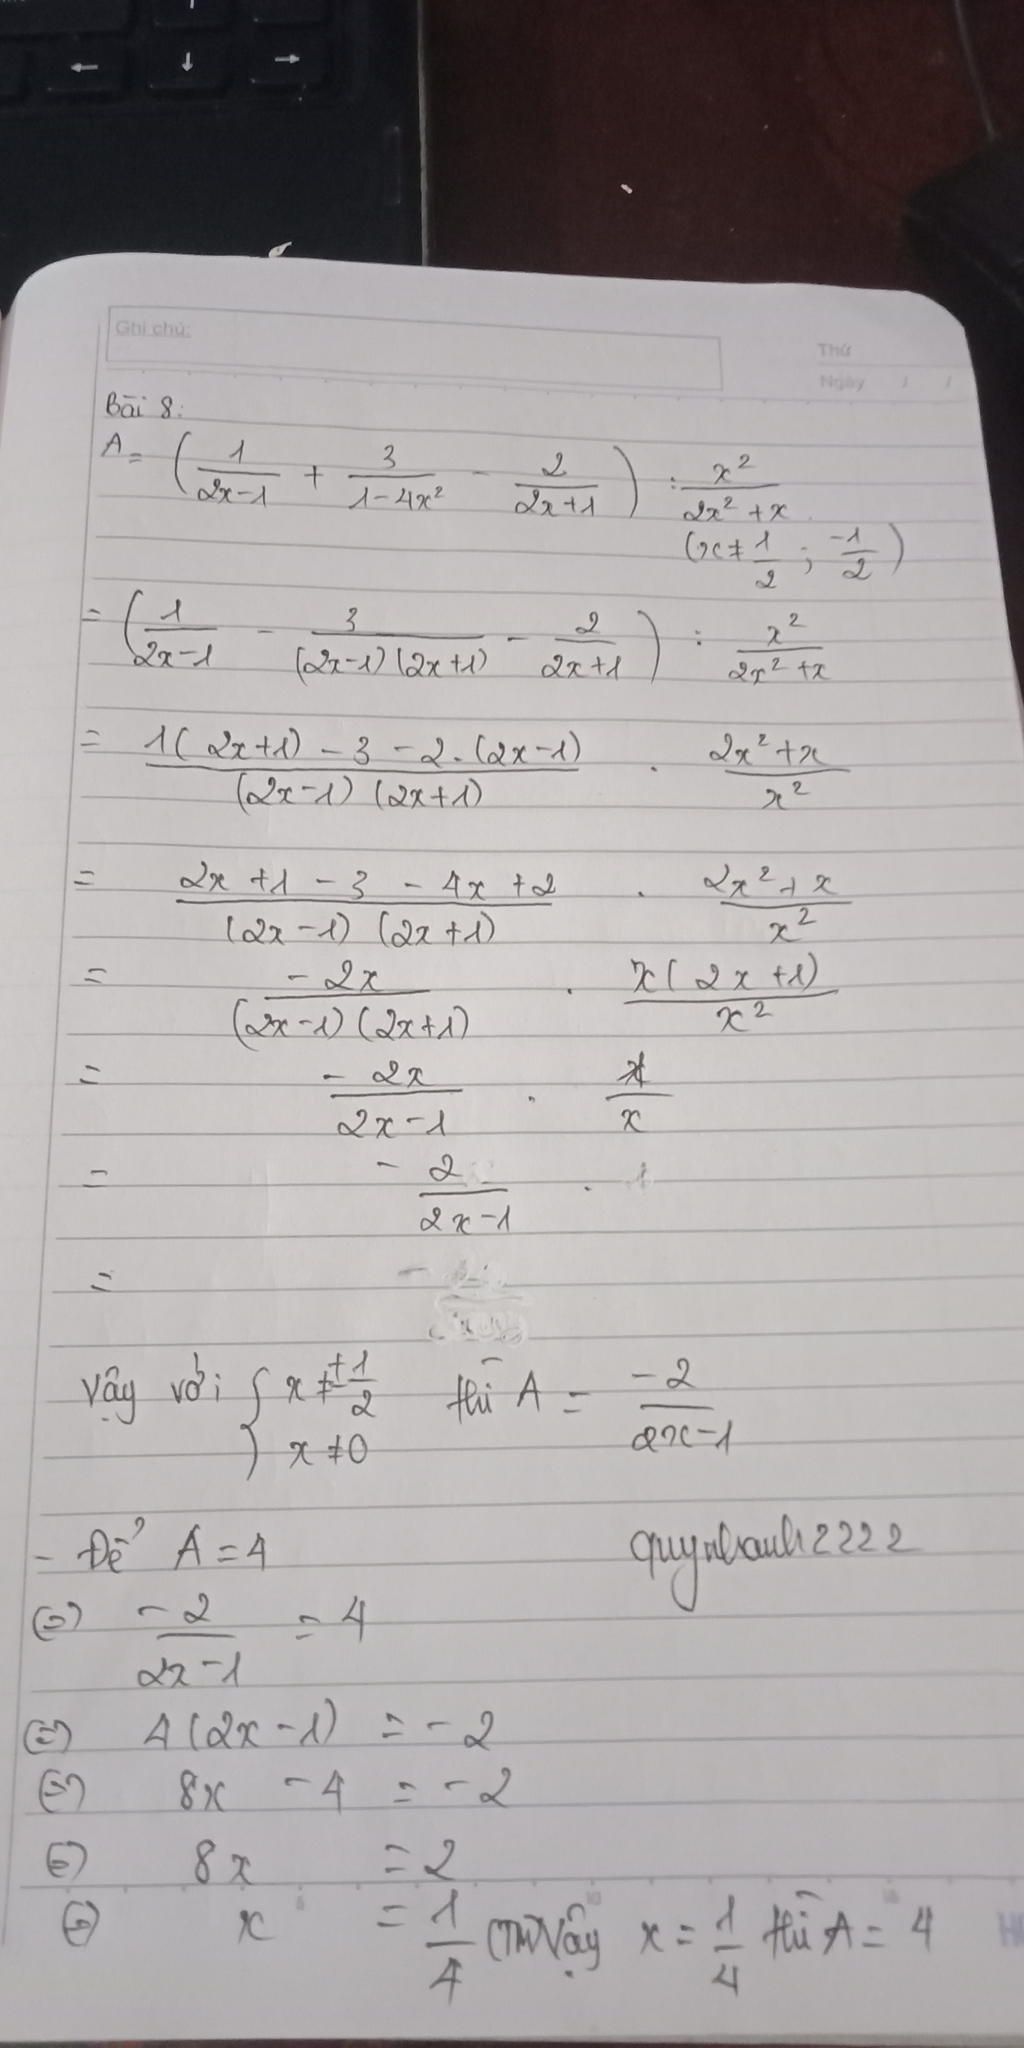 Ghi chú:
Thứ
Ngày / /
Bài 8:
A = (1/(2x-1) + 3/(1-4x²) - 2/(2x+1)) : x²/(2x²+x)
(x ≠ 1/2 ; -1/2)
= (1/(2x-1) - 3/((2x-1)(2x+1)) - 2/(2x+1)) : x²/(2x²+x)
= (1(2x+1) - 3 - 2.(2x-1))/((2x-1)(2x+1)) . (2x²+x)/x²
= (2x+1-3-4x+2)/((2x-1)(2x+1)) . (2x²+x)/x²
= -2x/((2x-1)(2x+1)) . x(2x+1)/x²
= -2x/(2x-1) . 1/x
= -2/(2x-1) .
= -
Vậy với { x ≠ ±1/2 thì A = -2/(2x-1)
x ≠ 0
- Để A = 4 quynhanh2222
(=) -2/(2x-1) = 4
(=) 4(2x-1) = -2
(=) 8x - 4 = -2
(=) 8x = 2
(=) x = 1/4 (TM) Vậy x = 1/4 thì A = 4